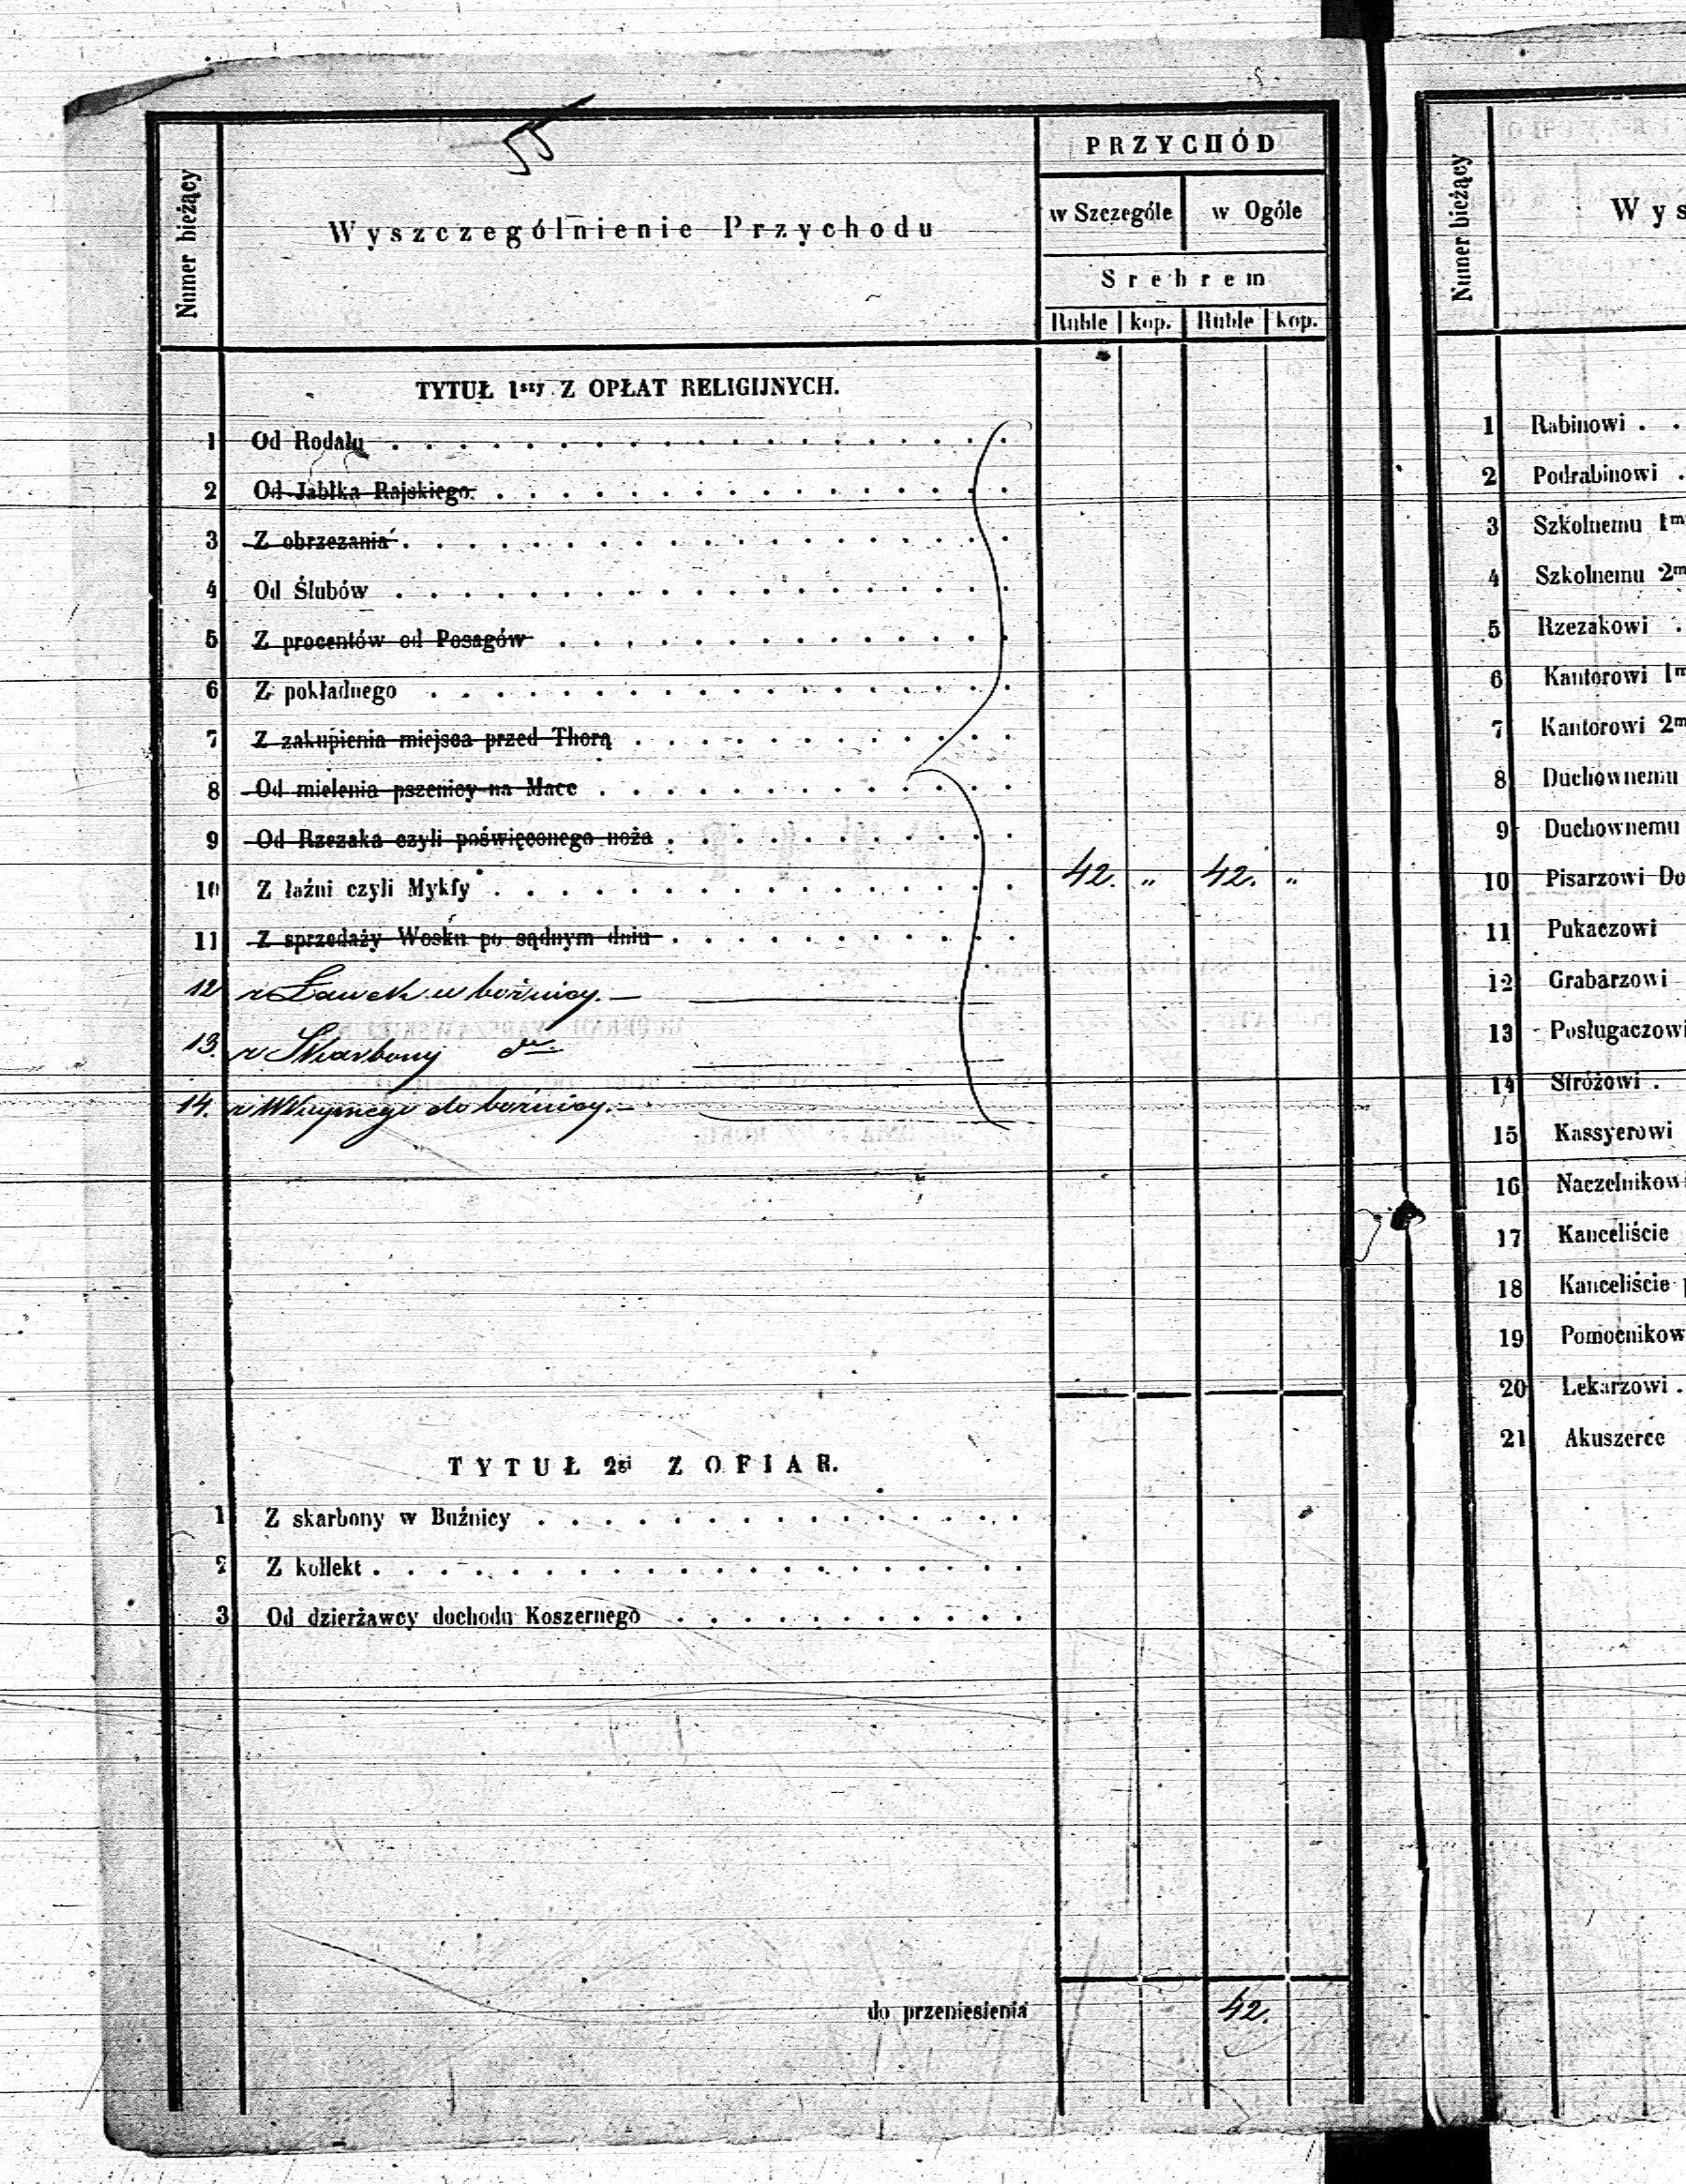 55
Numer bieżący
Wyszczególnienie Przychodu
PRZYCHÓD
w Szczególe w Ogóle
Srebrem
Ruble kop. Ruble kop.
TYTUŁ 1szy Z OPŁAT RELIGIJNYCH.
1 Od Rodału
2 Od Jabłka Rajskiego.
3 Z obrzezania
4 Od Ślubów
5 Z procentów od Posagów
6 Z pokładnego
7 Z zakupienia miejsca przed Thorą
8 Od mielenia pszenicy na Mace
9 Od Rzezaka czyli poświęconego noża
10 Z łaźni czyli Mykfy 42. „ 42. „
11 Z sprzedaży Wosku po sądnym dniu
12 z Ławek w bożnicy. —
13. z Skarbony do
14. z Wkupnego do bożnicy. —
TYTUŁ 2gi Z OFIAR.
1 Z skarbony w Buźnicy
2 Z kollekt
3 Od dzierżawcy dochodu Koszernego
do przeniesienia 42.
Numer bieżący
Wys
1 Rabinowi
2 Podrabinowi
3 Szkolnemu 1m
4 Szkolnemu 2m
5 Rzezakowi
6 Kantorowi 1m
7 Kantorowi 2m
8 Duchownemu
9 Duchownemu
10 Pisarzowi Do
11 Pukaczowi
12 Grabarzowi
13 Posługaczowi
14 Stróżowi
15 Kassyerowi
16 Naczelnikow
17 Kanceliście
18 Kanceliście
19 Pomocnikow
20 Lekarzowi
21 Akuszerce